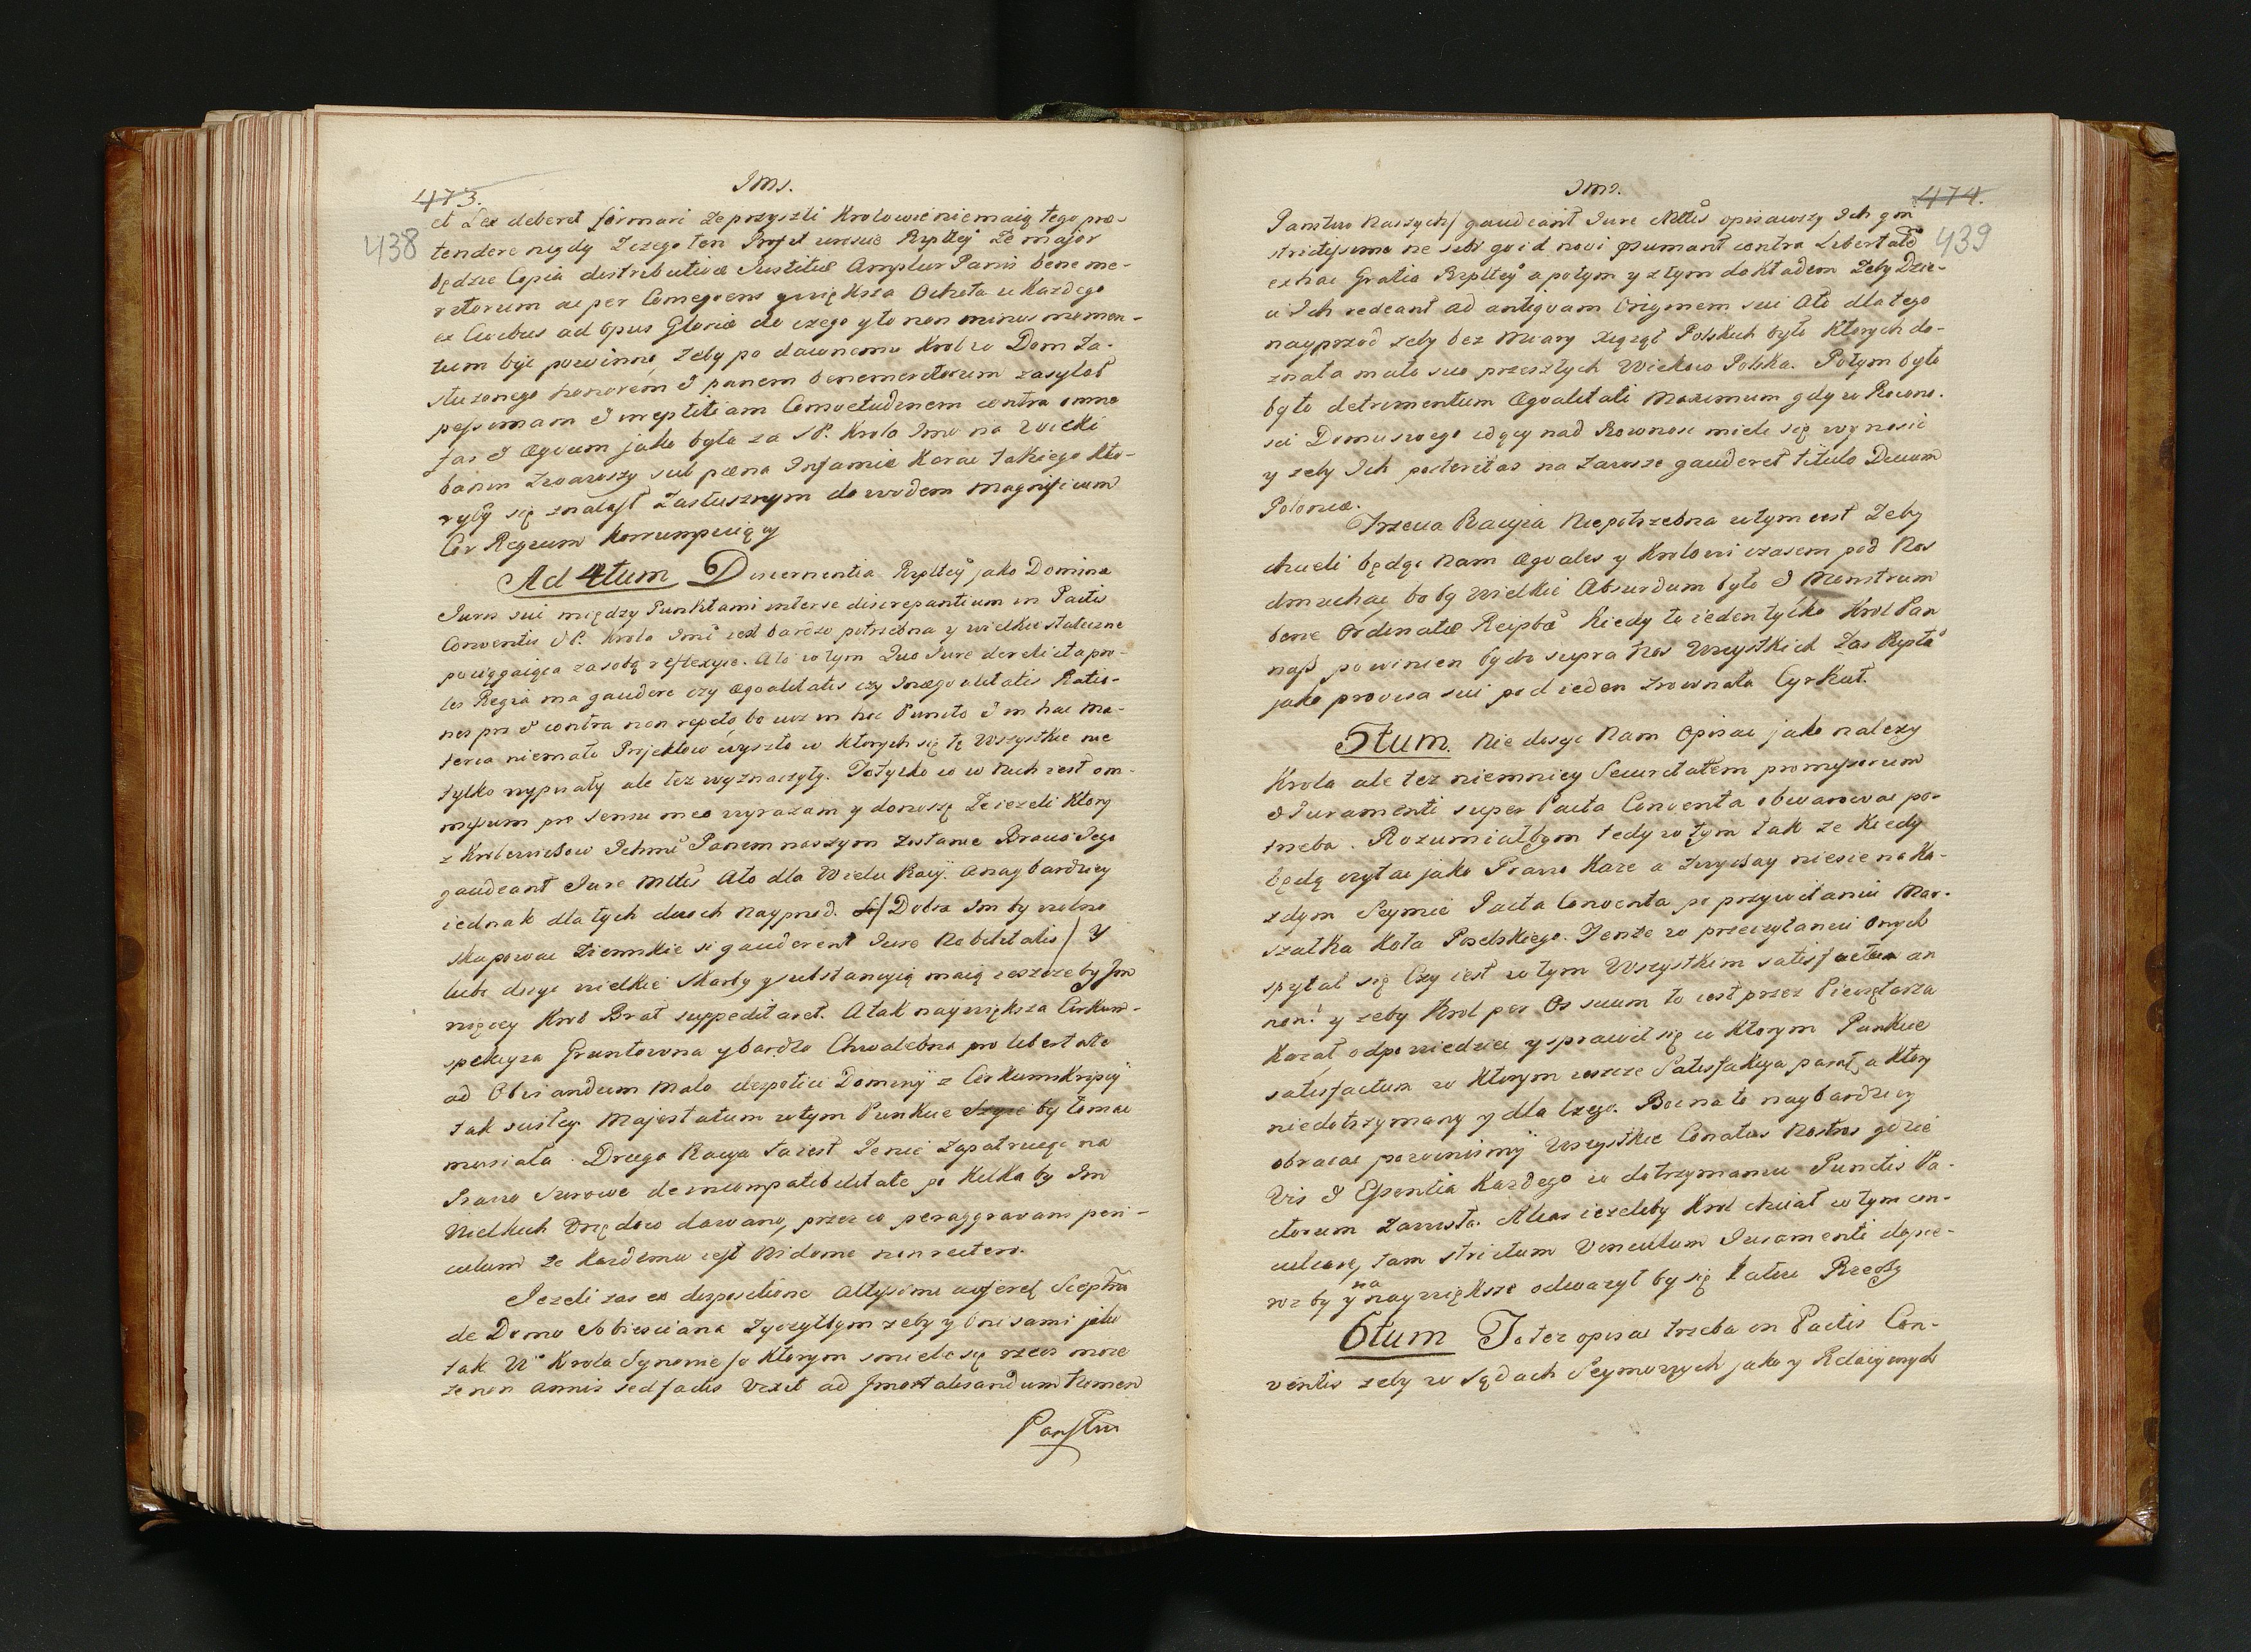 Ims.
473.
438
et Lex deberet formari ze przyszli Krolowie nie maią tego prae-
tendere nigdy Z czego ten Rzpltey Ze major
będzie Copia distributivae Justitiae Amplur Panis bene me-
ritorum ac per Conseqvens y większa Ochota w Kazdego
ex Civibus ad Opus Gloriae do czego y to non minus momen-
tum byc powinno, zeby po dawnemu Krol w Dom Za-
sluzonego honorem et panem benemeritorum zasylał
pessimam et Consvetudinem contra omne
fas et aeqvum jako była za SP. Krola Jmci na wieki
sub paena Infamiae Karac takiego Kto-
ryby się znalast Zaslusznym dowodem Magnificum
Cor Regium Korrumpuiący
Ad 4tum Rzpltey jako Domina
Juris sui między Punktami inter se discrepantium in Pactis
Conventis SP. Krola Jmci iest bardzo potrzebna y wielkie stateczne
pociągaiąca zasobą reflexyie. Ato w tym Quo Jure derelicta pro-
les Regia ma gaudere czy aeqvalitatis czy Inaeqvalitatis Ratio-
nes pro et contra non repeto, bo iuz in hoc Puncto et in hac Ma-
teria niemało Projektow wyszło w ktorych się te Wszystkie nie
tylko wypisały ale tez wyznaczyły. To tylko co w Nich iest om-
missum pro sensu meo wyrazam y donoszę Ze iezeli Ktory
z Krolewicow Ichmci Panem naszym Zostanie Bracia Jego
gaudeant Jure Mltis Ato dla Wielu Racyi. a naybardziey
iednak dla tych dwoch Nayprzod. Dobra Im by wolno
skupowac Ziemskie si gauderent Jure Nobilitatis / Y
lubo dosyc wielkie Skarby y substancyią maią ieszcze by Im
więcey Krol Brat suppeditaret. A tak największa Cirkum-
spekcyia Gruntowna y bardzo Chwalebna pro libertate
ad Obviandum Malo despotici Dominy z Cirkumskripcyi
tak scisłey Majestatum w tym Punkcie by łomac
musiała. Druga Racya Ta iest Ze nie Zapatruiąc na
Prawo Surowe de incompatibilitate po Kilka by Im
Wielkich Urzędow dawano, przez co peraggravans peri-
culum ze Kazdemu iest Widome non reitero.
Jezeli zas ex dispositione Altissimi auferet Sceptra
de Domo Sobiesciana Zyczyłbym zeby y Oni sami jako
tak W Krola Synowie / o Ktorym smiele się rzecz moze
ze non annis sed factis vixit ad Immortalisandum Nomen
Panstw
Ims.
474.
439
Panstwo Naszych / gaudeant Jure Mltis opisawszy Ich qvam
strictissime ne sibi qvid novi praesumant contra Libertatem
ex hac Gratia Rzpltey a potym y z tym dokładem Zeby Dzie-
ci Ich redeant ad antiqvam Originem sui Ato dlatego
nayprzod zeby bez Miary Xiąząt Polskich było Ktorych do-
znała mało co przeszłych Wiekow Polska. Potym było
było detrimentum Aeqvalitati Maximum gdy w Rowno-
sci Domu swego idący nad Rownosc mieli się wynosic
y zeby Ich posteritas na Zawsze gauderet titulo Ducum
Poloniae.
Trzecia Racyia Niepotrzebna w tym iest Zeby
chcieli będąc Nam Aeqvales y Krolowi czasem pod Nos
dmuchac bo by Wielkie Absurdum było et Monstrum
bene Ordinatae Reipbcae Kiedy to ieden tylko Krol Pan
nasz powinien bydz supra Nos Wszystkich Zas Rzplta
jako provisa sui pod ieden Zrownała Cyrkuł.
5tum. Nie dosyc Nam Opisac jako nalezy
Krola ale tez niemniey Securitatem promissorum
et Juramenti super Pacta Conventa obwarowac po-
trzeba. Rozumiałbym tedy w tym tak ze Kiedy
będą czytac jako Prawo Kaze a Zwyczay niesie na Ka-
zdym Seymie Pacta Conventa po przywitaniu Mar-
szałka Koła Poselskiego. Tenze w przeczytaniu Onych
spytał się Czy iest w tym Wszystkim satisfactum an
non? y zeby Krol per Os suum to iest przez Pieczętarza
Kazał odpowiedziec y sprawił się w Ktorym Punkcie
satisfactum w Ktorym ieszcze Satisfakcyia a Ktory
niedotrzymany y dla Czego. Bo na to naybardziey
obracac powinnismy Wszystkie Conatus Nostros gdzie
Vis et Essentia Kazdego w dotrzymaniu Punctis Pa-
ctorum Zawisła. Alias iezeliby Krol chciał w tym con-
culcare, tam strictum Vinculum Juramenti dopie-
ro by y na naywiększe odwazył by się łatwo Rzeczy
6tum To tez opisac trzeba in Pactis Con-
ventis zeby w Sądach Seymowych jako y Relacyinych